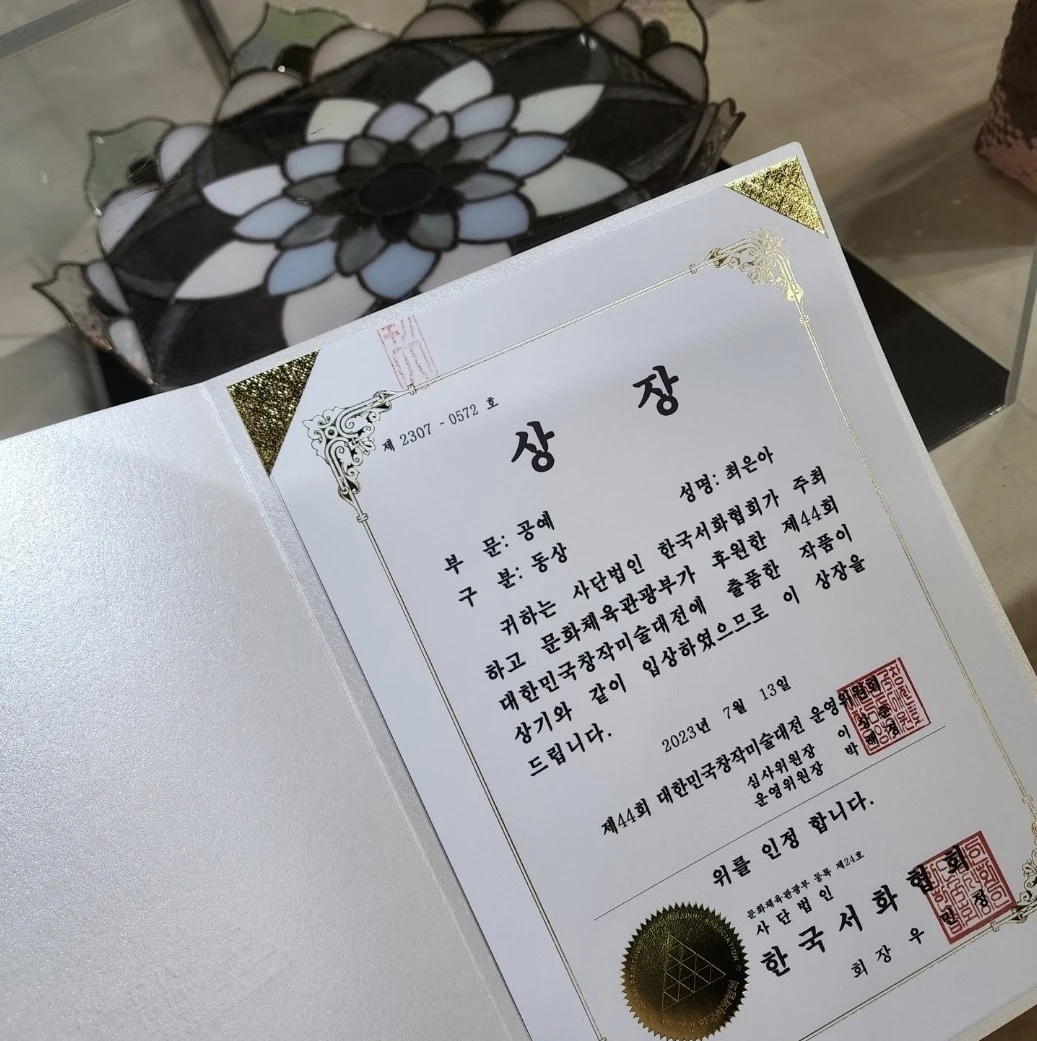 제 2307 - 0572 호
상 장
성명: 최은아
부 문: 공예
구 분: 동상
귀하는 사단법인 한국서화협회가 주최
하고 문화체육관광부가 후원한 제44회
대한민국창작미술대전에 출품한 작품이
상기와 같이 입상하였으므로 이 상장을
드립니다.
2023년 7월 13일
제44회 대한민국창작미술대전 운영위원회
심사위원장 이
운영위원장 박
위를 인정 합니다.
문화체육관광부 등록 제24호
사단법인
한국서화협회
회장 우 민 정